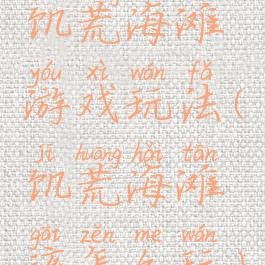 饥荒海滩
yóu xì wán fǎ
游戏玩法(
jī huāng hǎi tān
饥荒海滩
gāi zěn me wán
该怎么玩)